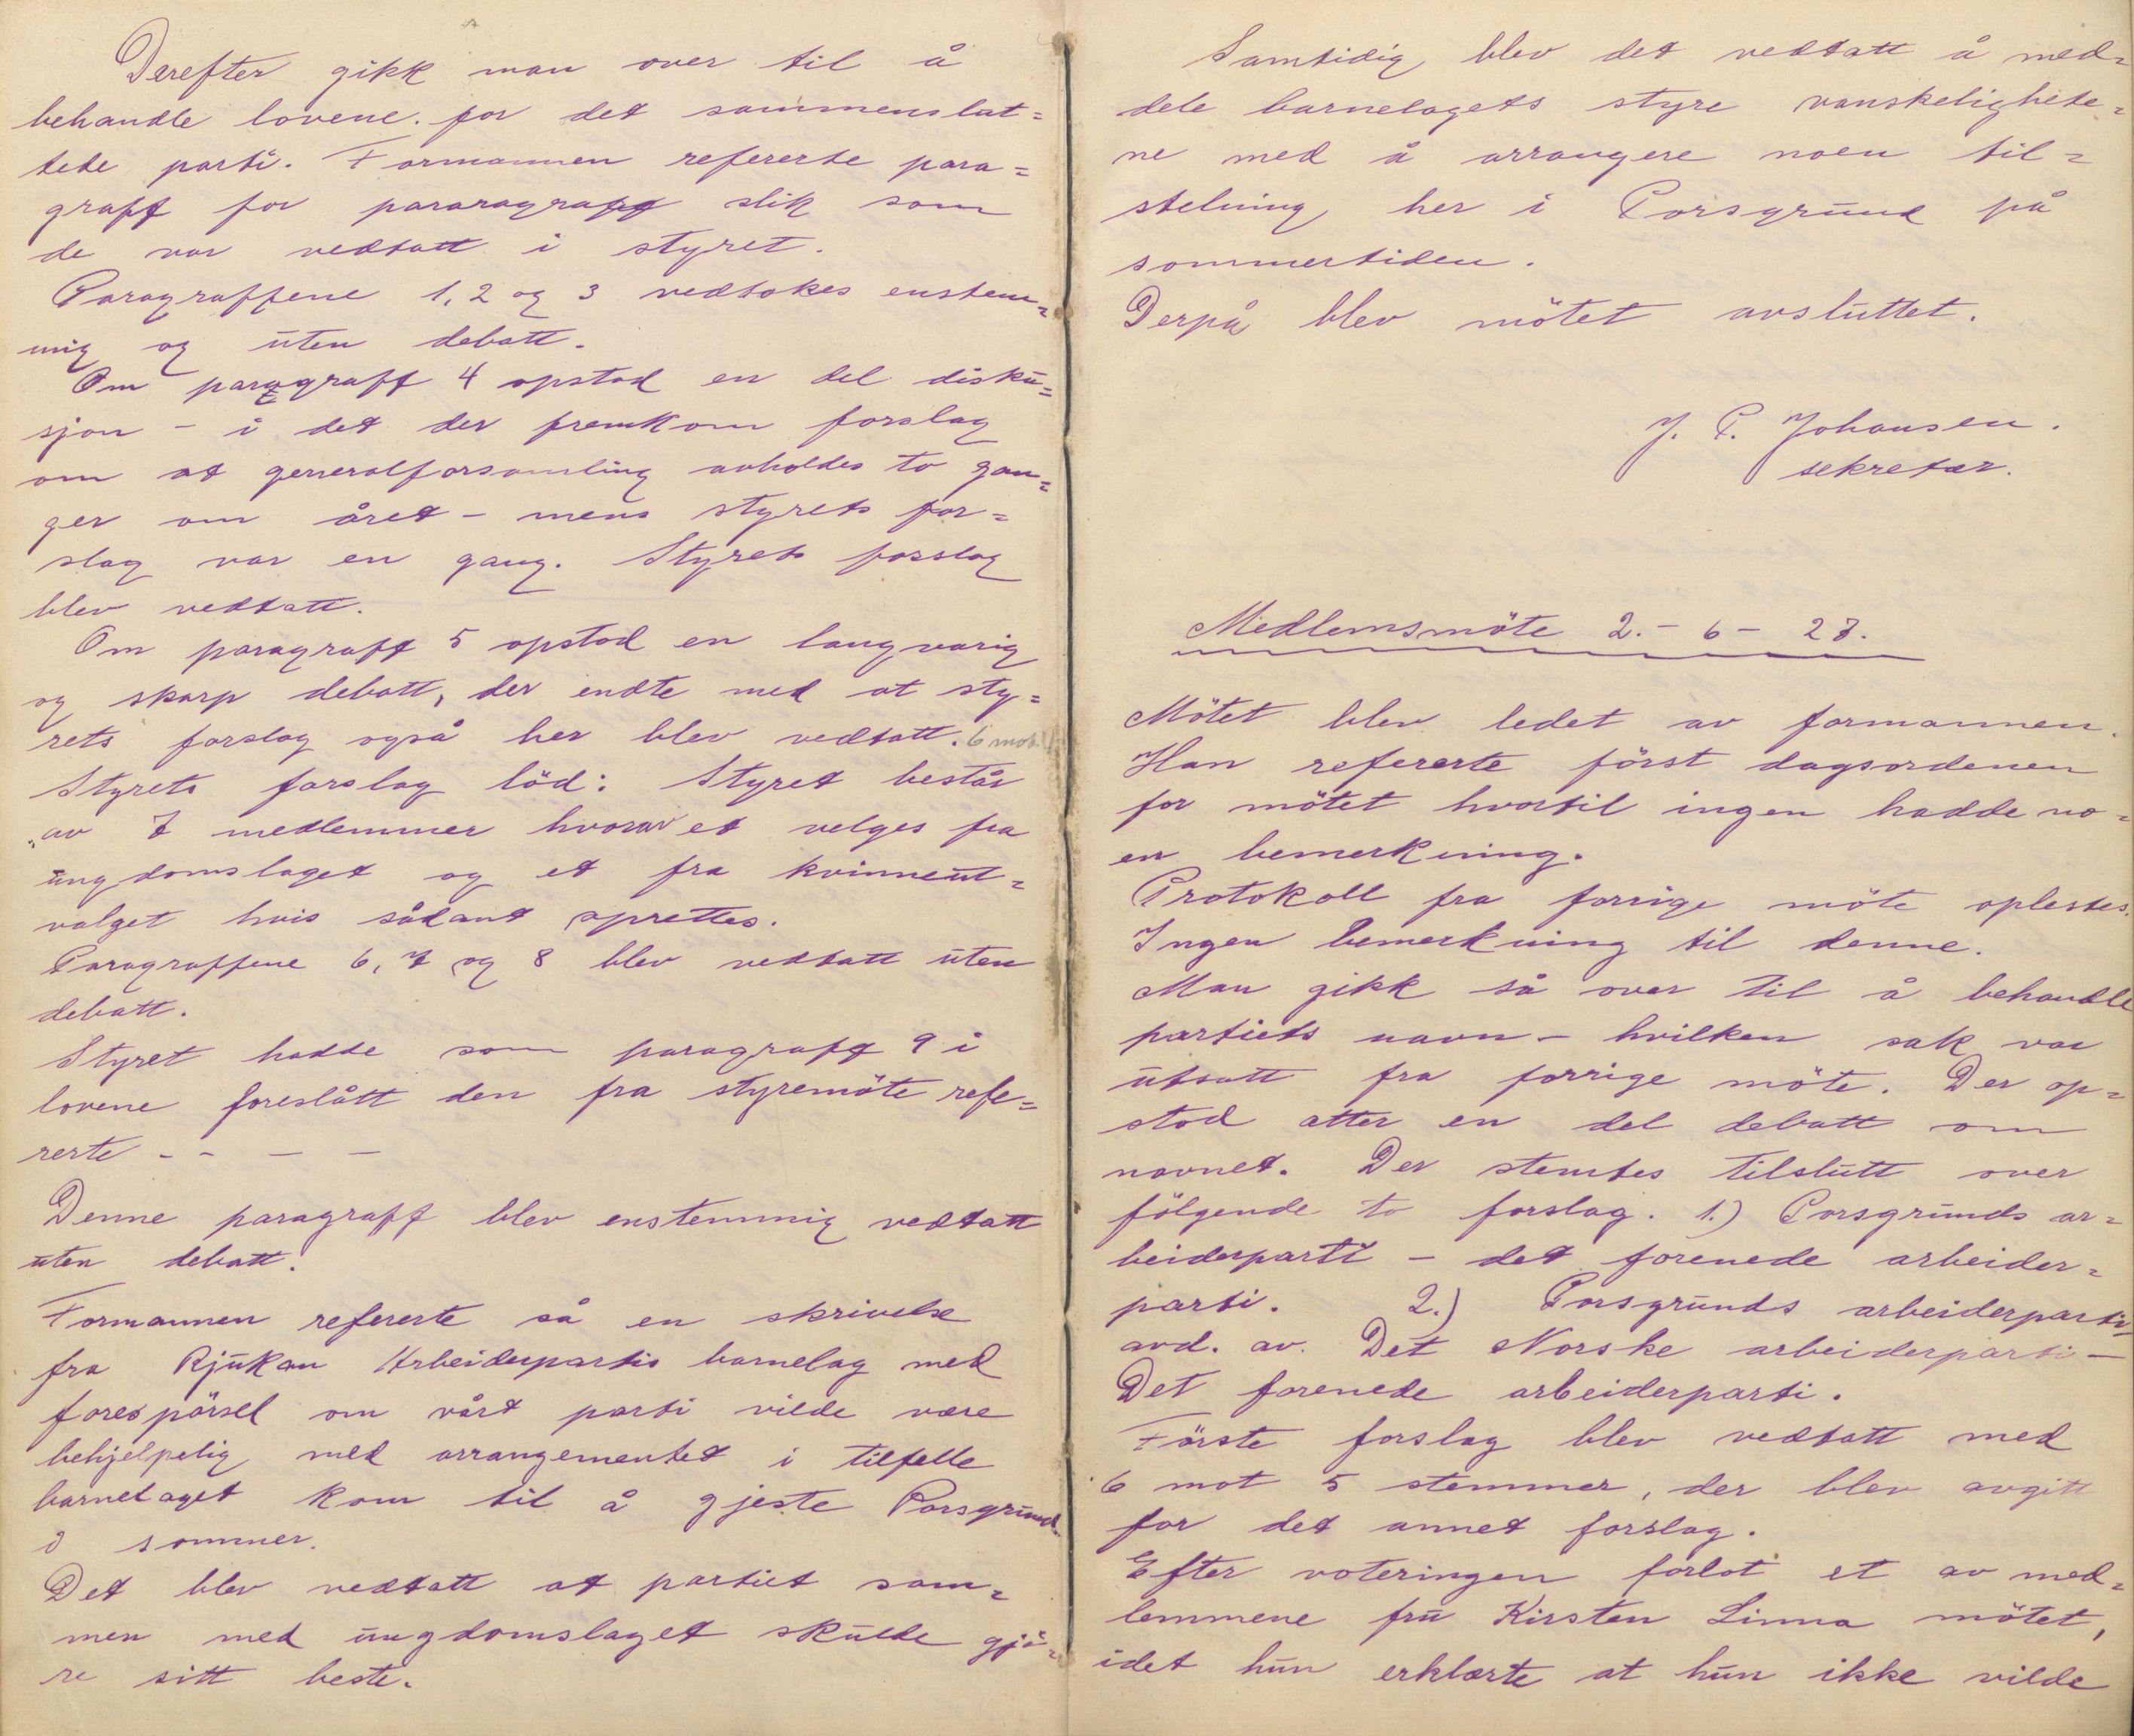 Derefter gikk man over til å
behandle lovene. for det sammenslut=
tede parti. Formannen refererte para=
graff for pararagraff slik som
de var vedtatt i styret.
Paragraffene 1, 2 og 3 vedtokes enstem=
mig og uten debatt.
Om paragraff 4 opstod en del disku=
sjon - i det der fremkom forslag
om at generalforsamling avholdes to gan=
ger om året - mens styrets for=
slag var en gang. Styrets forslag
blev vedtatt.
Om paragraff 5 opstod en langvarig
og skarp debatt, der endte med at sty=
rets forslag også her blev vedtatt. 6 mot
Styrets forslag löd: Styret består
"av 7 medlemmer hvorav et velges fra
ungdomslaget og et fra kvinneut=
valget hvis sådant oprettes.
Paragraffene 6, 7 og 8 blev vedtatt uten
debatt.
Styret hadde som paragraff 9 i
lovene foreslått den fra styremöte refe=
rerte - - - -
Denne paragraff blev enstemmig vedtatt
uten debatt.
Formannen refererte så en skrivelse
fra Rjukan Arbeiderpartis barnelag med
forespörsel om vårt parti vilde være
behjelpelig med arrangementet i tilfelle
barnelaget kom til å gjeste Porsgrund
i sommer.
Det blev vedtatt at partiet sam=
men med ungdomslaget skulde gjö=
re sitt beste.
Samtidig blev det vedtatt å med=
dele barnelagets styre vanskelighete=
ne med å arrangere noen til=
stelning her i Porsgrund på
sommertiden.
Derpå blev mötet avsluttet.
J. P. Johansen.
sekretær.
Medlemsmöte 2. - 6 - 27.
Mötet blev ledet av formannen.
Han refererte först dagsordenen
for mötet hvortil ingen hadde no=
en bemerkning.
Protokoll fra forrige möte oplestes.
Ingen bemerkning til denne.
Man gikk så over til å behandle
partiets navn - hvilken sak var
utsatt fra forrige möte. Der op=
stod atter en del debatt om
navnet. Der stemtes tilslutt over
fölgende to forslag. 1.) Porsgrunds ar=
beiderparti - det forenede arbeider=
parti. 2.) Porsgrunds arbeiderparti-
avd. av. Det Norske arbeiderparti -
Det forenede arbeiderparti.
Förste forslag blev vedtatt med
6 mot 5 stemmer, der blev avgitt
for det annet forslag.
Efter voteringen forlot et av med=
lemmene fru Kirsten Linna mötet,
idet hun erklærte at hun ikke vilde